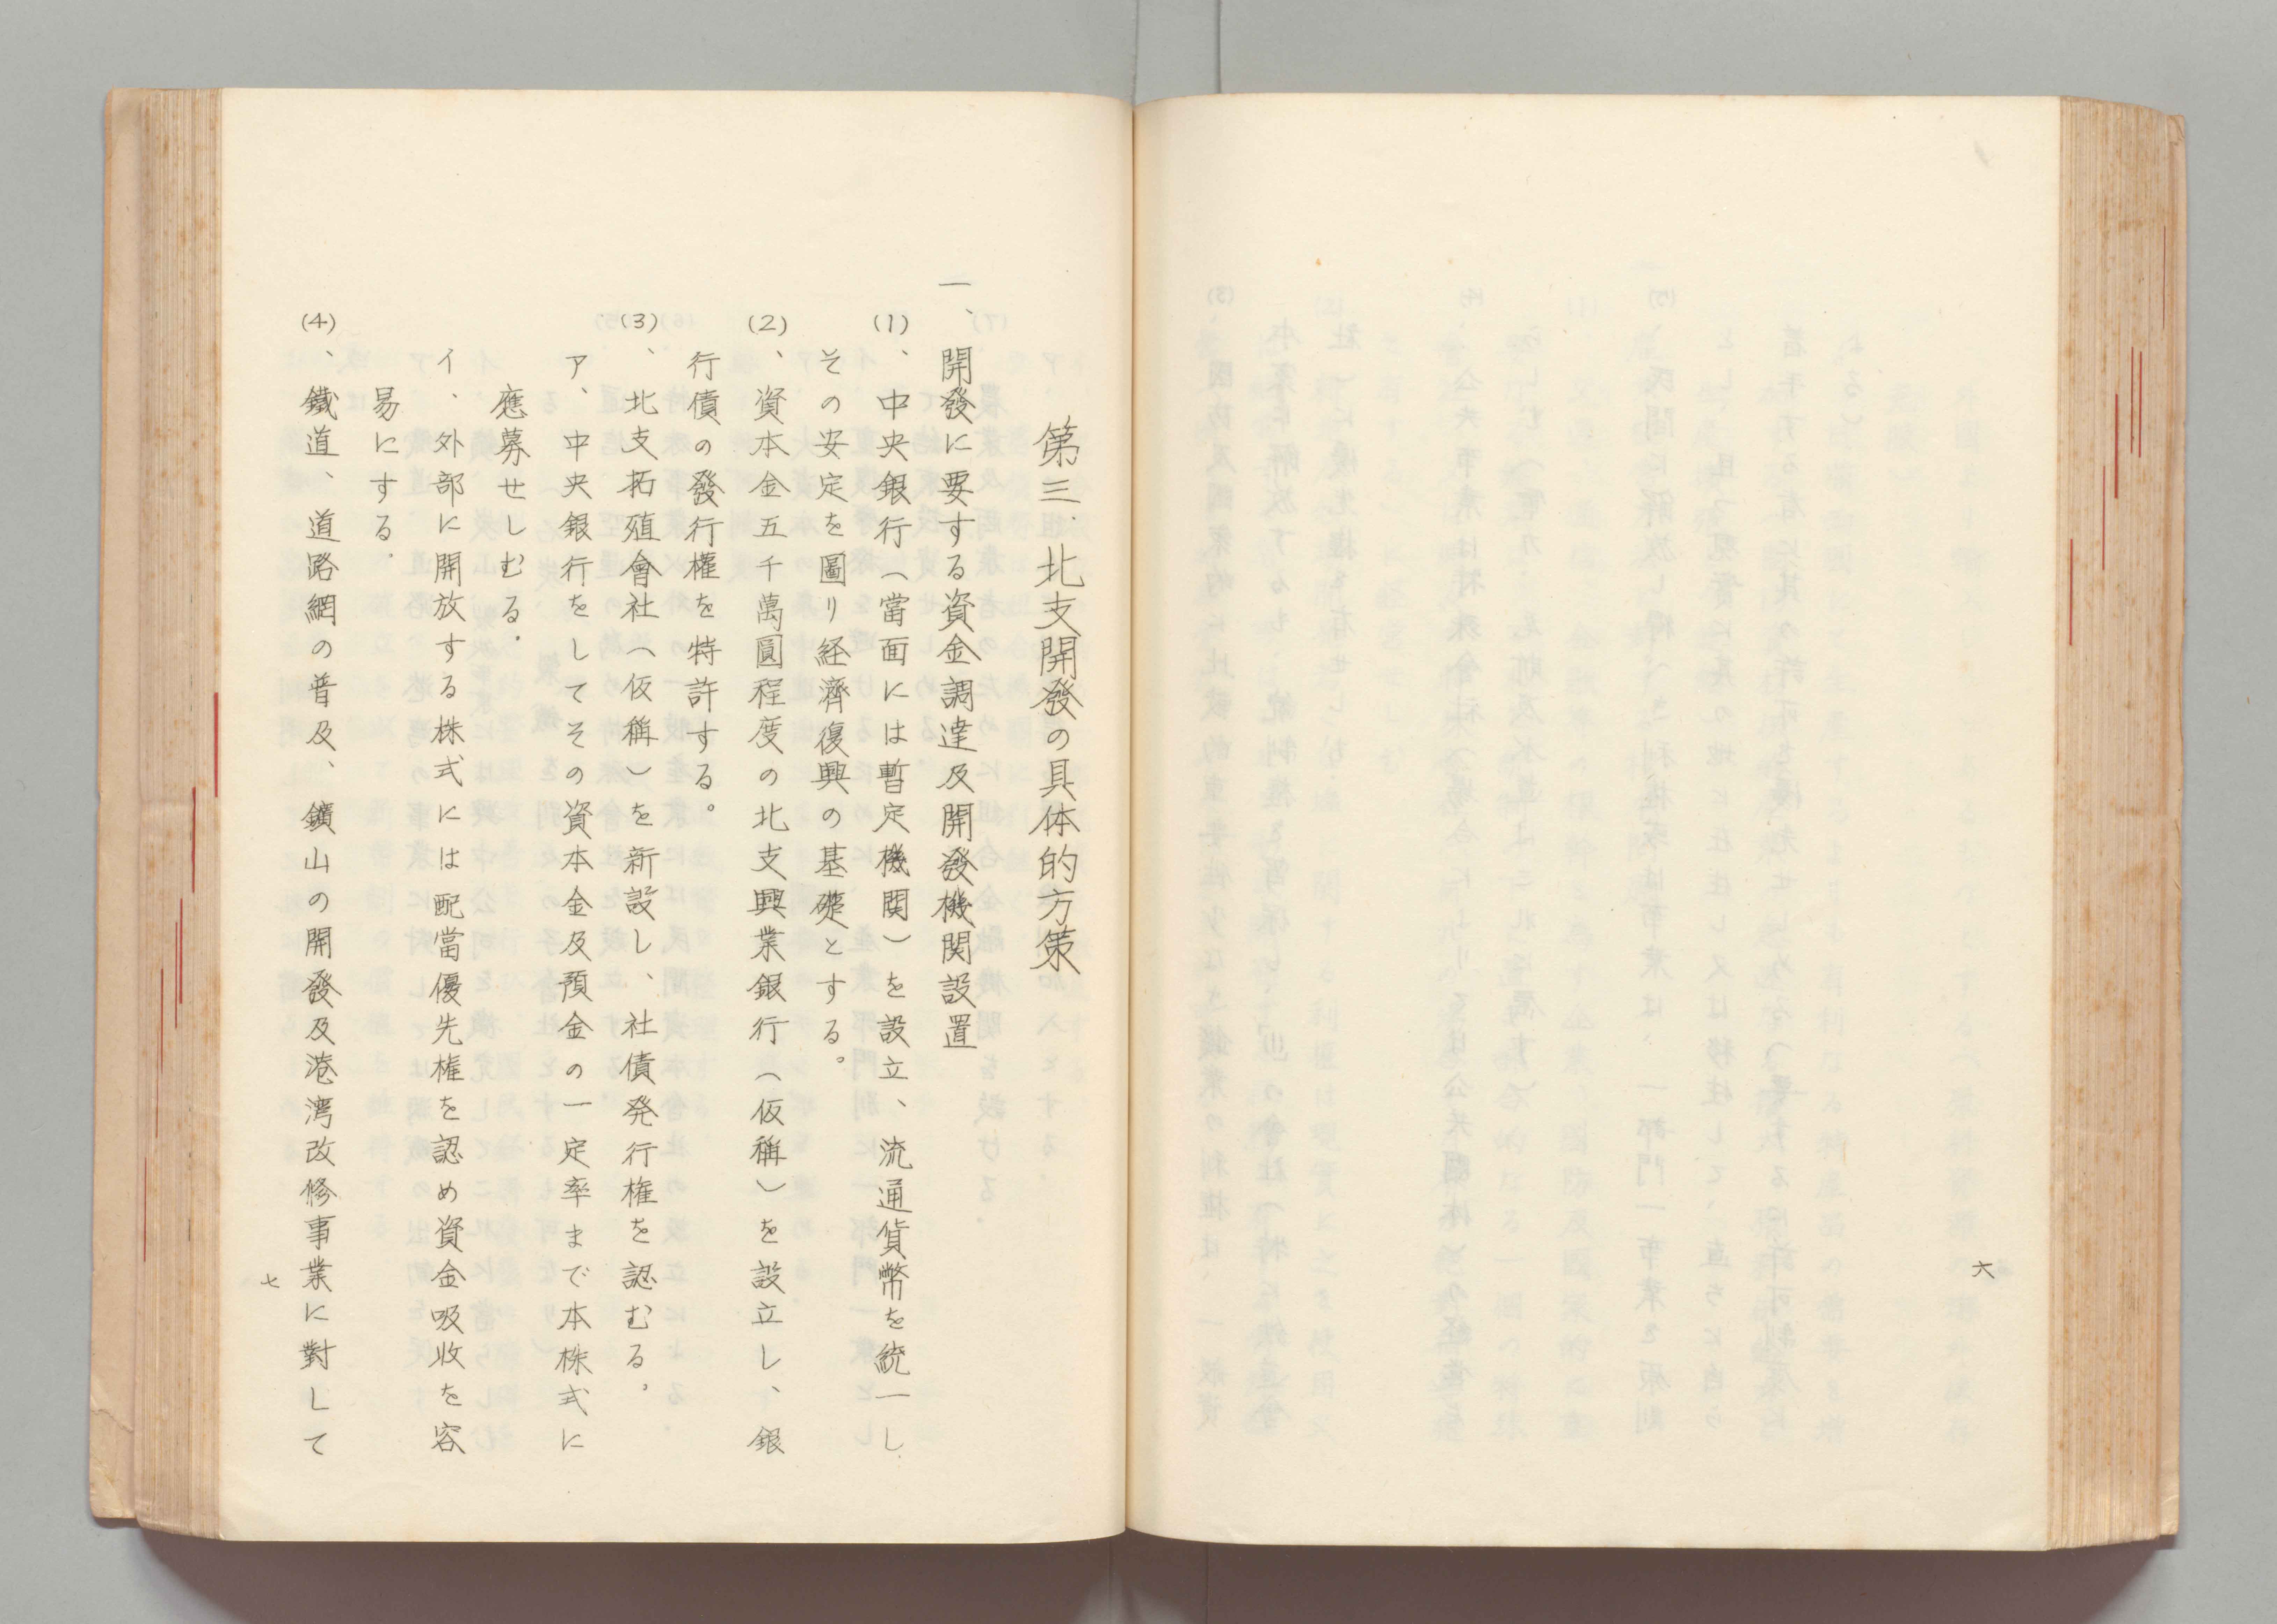 六
第三．北支開發の具体的方策
一、開發に要する資金調達及開發機関設置
(1)、中央銀行（當面には暫定機関）を設立、流通貨幣を統一し
その安定を圖り経濟復興の基礎とする。
(2)、資本金五千萬圓程度の北支興業銀行（仮稱）を設立し、銀
行債の發行權を特許する。
(3)、北支拓殖會社（仮稱）を新設し、社債発行権を認むる。
ア、中央銀行をしてその資本金及預金の一定率まで本株式に
應募せしむる．
イ、外部に開放する株式には配當優先権を認め資金吸收を容
易にする．
(4)、鐵道、道路網の普及、鑛山の開發及港湾改修事業に對して
七